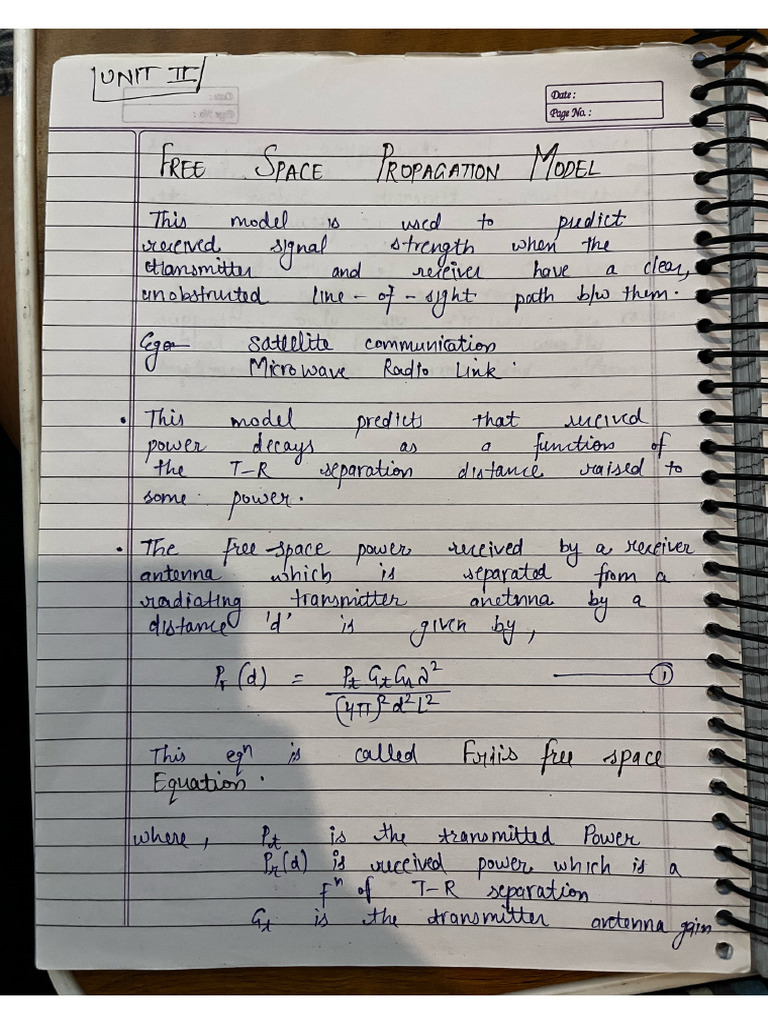 UNIT II
Date :
Page No. :
FREE SPACE PROPAGATION MODEL
This model is used to predict
received signal strength when the
transmitter and receiver have a clear,
unobstructed line-of-sight path b/w them.
Eg:- satellite communication
Microwave Radio Link.
• This model predicts that received
power decays as a function of
the T-R separation distance raised to
some power.
• The free-space power received by a receiver
antenna which is separated from a
radiating transmitter anetnna by a
distance 'd' is given by,
Pr(d) = Pt Gt Gr λ² / (4π)² d² L² ——— ①
This eqn is called Friis free space
Equation.
where, Pt is the transmitted Power
Pr(d) is received power which is a
fn of T-R separation
Gt is the transmitter antenna gain